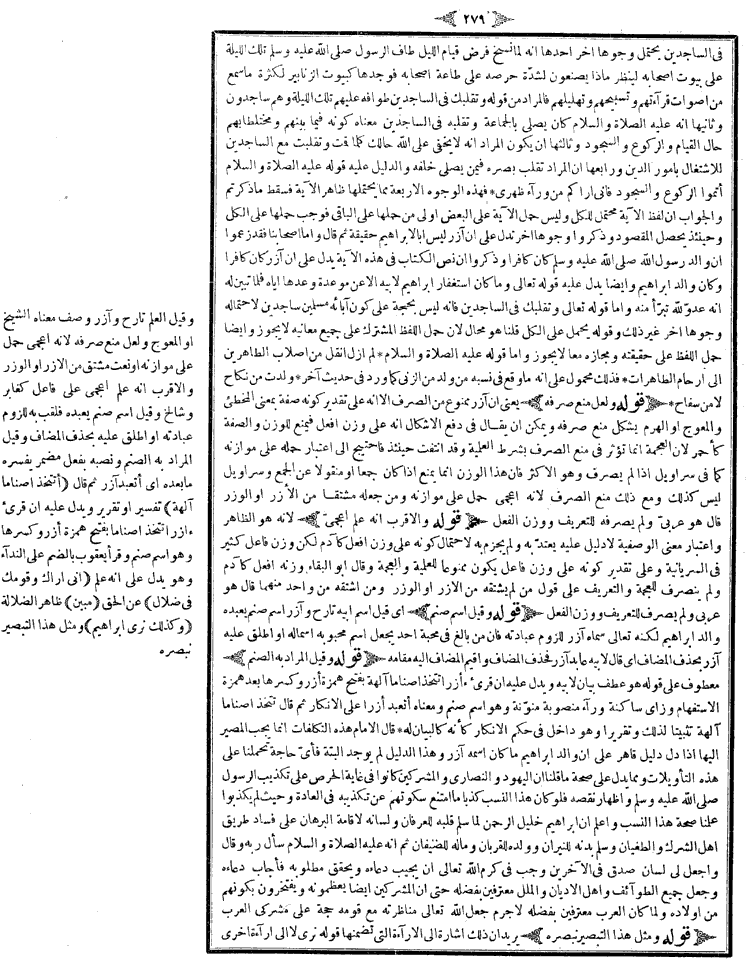 ﴿ ٢٧٩ ﴾
فى الساجدين يحتمل وجوها اخر احدها انه لما نسخ فرض قيام الليل طاف الرسول صلى الله عليه وسلم تلك الليلة
على بيوت اصحابه لينظر ماذا يصنعون لشدة حرصه على طاعة اصحابه فوجدها كبيوت الزنابير لكثرة ماسمع
من اصوات قرآءتهم وتسبيحهم وتهليلهم فالمراد من قوله وتقلبك فى الساجدين طوافه عليهم تلك الليلة وهم ساجدون
وثانيها انه عليه الصلاة والسلام كان يصلى بالجماعة وتقلبه فى الساجدين معناه كونه فيما بينهم ومختلطا بهم
حال القيام والركوع والسجود وثالثها ان يكون المراد انه لايخفى على الله حالك كلما قمت وتقلبت مع الساجدين
للاشتغال بامور الدين ورابعها ان المراد تقلب بصره فيمن يصلى خلفه والدليل عليه قوله عليه الصلاة والسلام
أتموا الركوع والسجود فانى اراكم من ورآء ظهرى* فهذه الوجوه الاربعة مما يحتملها ظاهر الآية فسقط ماذكرتم
والجواب ان لفظ الآية محتمل للكل وليس حمل الآية على البعض اولى من حملها على الباقى فوجب حملها على الكل
وحينئذ يحصل المقصود وذكروا وجوها اخر تدل على ان آزر ليس ابا لابراهيم حقيقة ثم قال واما اصحابنا فقد زعموا
ان والد رسول الله صلى الله عليه وسلم كان كافرا وذكروا ان نص الكتاب فى هذه الآية يدل على ان آزر كان كافرا
وكان والد ابراهيم وايضا يدل عليه قوله تعالى وماكان استغفار ابراهيم لابيه الاعن موعدة وعدها اياه فلما تبين له
انه عدو لله تبرأ منه واما قوله تعالى وتقلبك فى الساجدين فانه ليس بحجة على كون آبائه مسلمين ساجدين لاحتماله
وجوها اخر غير ذلك وقوله يحمل على الكل قلنا هو محال لان حمل اللفظ المشترك على جميع معانيه لايجوز وايضا
حمل اللفظ على حقيقته ومجازه معا لايجوز واما قوله عليه الصلاة والسلام* لم ازل انقل من اصلاب الطاهرين
الى ارحام الطاهرات* فذلك محمول على انه ماوقع فى نسبه من ولد من الزنى كما ورد فى حديث آخر* ولدت من نكاح
لامن سفاح* ﴿ قوله ولعل منع صرفه ﴾ يعنى ان آزر ممنوع من الصرف الا انه على تقدير كونه صفة بمعنى المخطئ
والمعوج او الهرم يشكل منع صرفه ويمكن ان يقال فى دفع الاشكال انه على وزن افعل فيمنع للوزن والصفة
كأحمر لان العجمة انما تؤثر فى منع الصرف بشرط العلمية وقد انتفت حينئذ فاحتيج الى اعتبار حمله على موازنه
كما فى سراويل اذا لم يصرف وهو الاكثر فان هذا الوزن انما يمنع اذا كان جمعا او منقولا عن الجمع وسراويل
ليس كذلك ومع ذلك منع الصرف لانه اعجمى حمل على موازنه ومن جعله مشتقا من الأزر او الوزر
قال هو عربى ولم يصرفه للتعريف ووزن الفعل ﴿ قوله والاقرب انه علم اعجمى ﴾ لانه هو الظاهر
واعتبار معنى الوصفية لادليل عليه يعتد به ولم يجزم به لاحتمال كونه على وزن افعل كآدم لكن وزن فاعل كثير
فى السريانية وعلى تقدير كونه على وزن فاعل يكون ممنوعا للعلمية والعجمة وقال ابو البقاء وزنه افعل كآدم
ولم ينصرف للعجمة والتعريف على قول من لم يشتقه من الازر او الوزر ومن اشتقه من واحد منهما قال هو
عربى ولم يصرف للتعريف ووزن الفعل ﴿ قوله وقيل اسم صنم ﴾ اى قيل اسم ابيه تارح وآزر اسم صنم يعبده
والد ابراهيم لكنه تعالى سماه آزر للزوم عبادته فان من بالغ فى محبة احد يجعل اسم محبوبه اسماله او اطلق عليه
آزر بحذف المضاف اى قال لابيه عابد آزر فحذف المضاف واقيم المضاف اليه مقامه ﴿ قوله وقيل المراد به الصنم ﴾
معطوف على قوله هو عطف بيان لابيه ويدل عليه ان قرئ ءأزر اتتخذ اصناما آلهة بفتح همزة آزر وكسرها بعد همزة
الاستفهام وزاى ساكنة ورآء منصوبة منونة وهو اسم صنم ومعناه أتعبد أزرا على الانكار ثم قال تتخذ اصناما
آلهة تثبيتا لذلك وتقريرا وهو داخل فى حكم الانكار كأنه كالبيان له* قال الامام هذه التكلفات انما يجب المصير
اليها اذا دل دليل قاهر على ان والد ابراهيم ماكان اسمه آزر وهذا الدليل لم يوجد البتة فأى حاجة تحملنا على
هذه التأويلات ومما يدل على صحة ماقلنا ان اليهود والنصارى والمشركين كانوا فى غاية الحرص على تكذيب الرسول
صلى الله عليه وسلم واظهار نقصه فلو كان هذا النسب كذبا ما امتنع سكوتهم عن تكذيبه فى العادة وحيث لم يكذبوا
علمنا صحة هذا النسب واعلم ان ابراهيم خليل الرحمن لما سلم قلبه للعرفان ولسانه لاقامة البرهان على فساد طريق
اهل الشرك والطغيان وسلم بدنه للنيران وولده للقربان وماله للضيفان ثم انه عليه الصلاة والسلام سأل ربه وقال
واجعل لى لسان صدق فى الآخرين وجب فى كرم الله تعالى ان يجيب دعاءه ويحقق مطلوبه فأجاب دعاءه
وجعل جميع الطوآئف واهل الاديان والملل معترفين بفضله حتى ان المشركين ايضا يعظمونه ويفتخرون بكونهم
من اولاده ولما كان العرب معترفين بفضله لاجرم جعل الله تعالى مناظرته مع قومه حجة على مشركى العرب
﴿ قوله ومثل هذا التبصير نبصره ﴾ يريد ان ذلك اشارة الى الارآءة التى تضمنها قوله نرى لا الى ارآءة اخرى
وقيل العلم تارح وآزر وصف معناه الشيخ
او المعوج ولعل منع صرفه لانه اعجمى حمل
على موازنه او نعت مشتق من الازر او الوزر
والاقرب انه علم اعجمى على فاعل كعابر
وشالخ وقيل اسم صنم يعبده فلقب به للزوم
عبادته او اطلق عليه بحذف المضاف وقيل
المراد به الصنم ونصبه بفعل مضمر يفسره
مابعده اى أتعبد آزر ثم قال ﴿ أتتخذ اصناما
آلهة ﴾ تفسير او تقرير ويدل عليه ان قرئ
ءازر اتتخذ اصناما بفتح همزة آزر وكسرها
وهو اسم صنم وقرأ يعقوب بالضم على الندآء
وهو يدل على انه علم ﴿ انى اراك وقومك
فى ضلال ﴾ عن الحق ﴿ مبين ﴾ ظاهر الضلالة
﴿ وكذلك نرى ابراهيم ﴾ ومثل هذا التبصير
نبصره